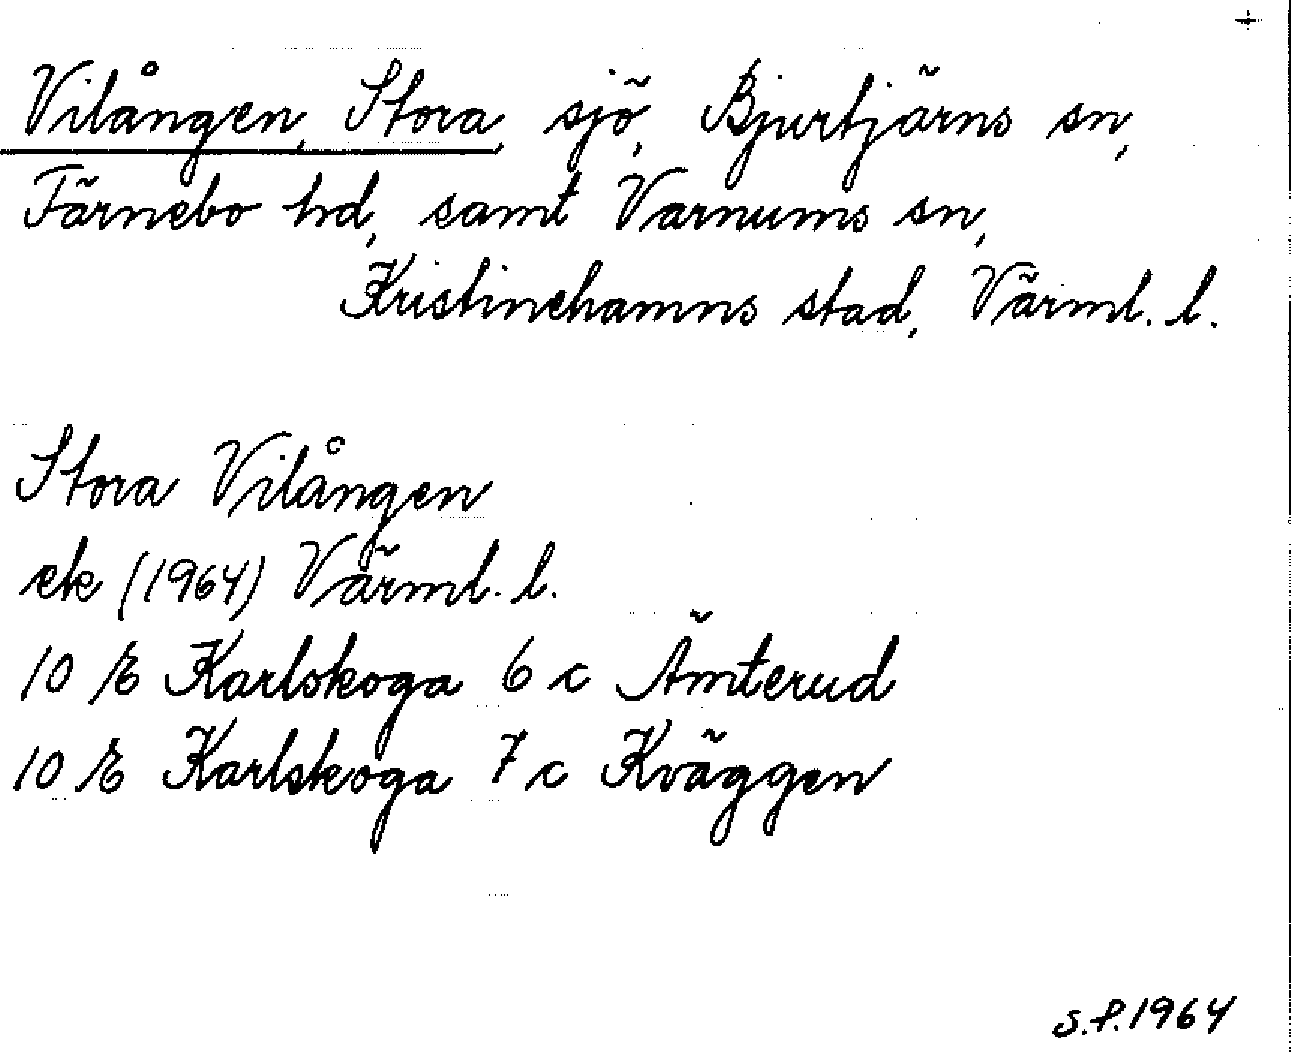 Vilången, Stora, sjö, Bjurtjärns sn,
Färnebo hd, samt Varnums sn,
Kristinehamns stad, Värml. l.
Stora Vilången
ek (1964) Värml. l.
10 E Karlskoga 6 c Ämterud
10 E Karlskoga 7 c Kväggen
S.P. 1964